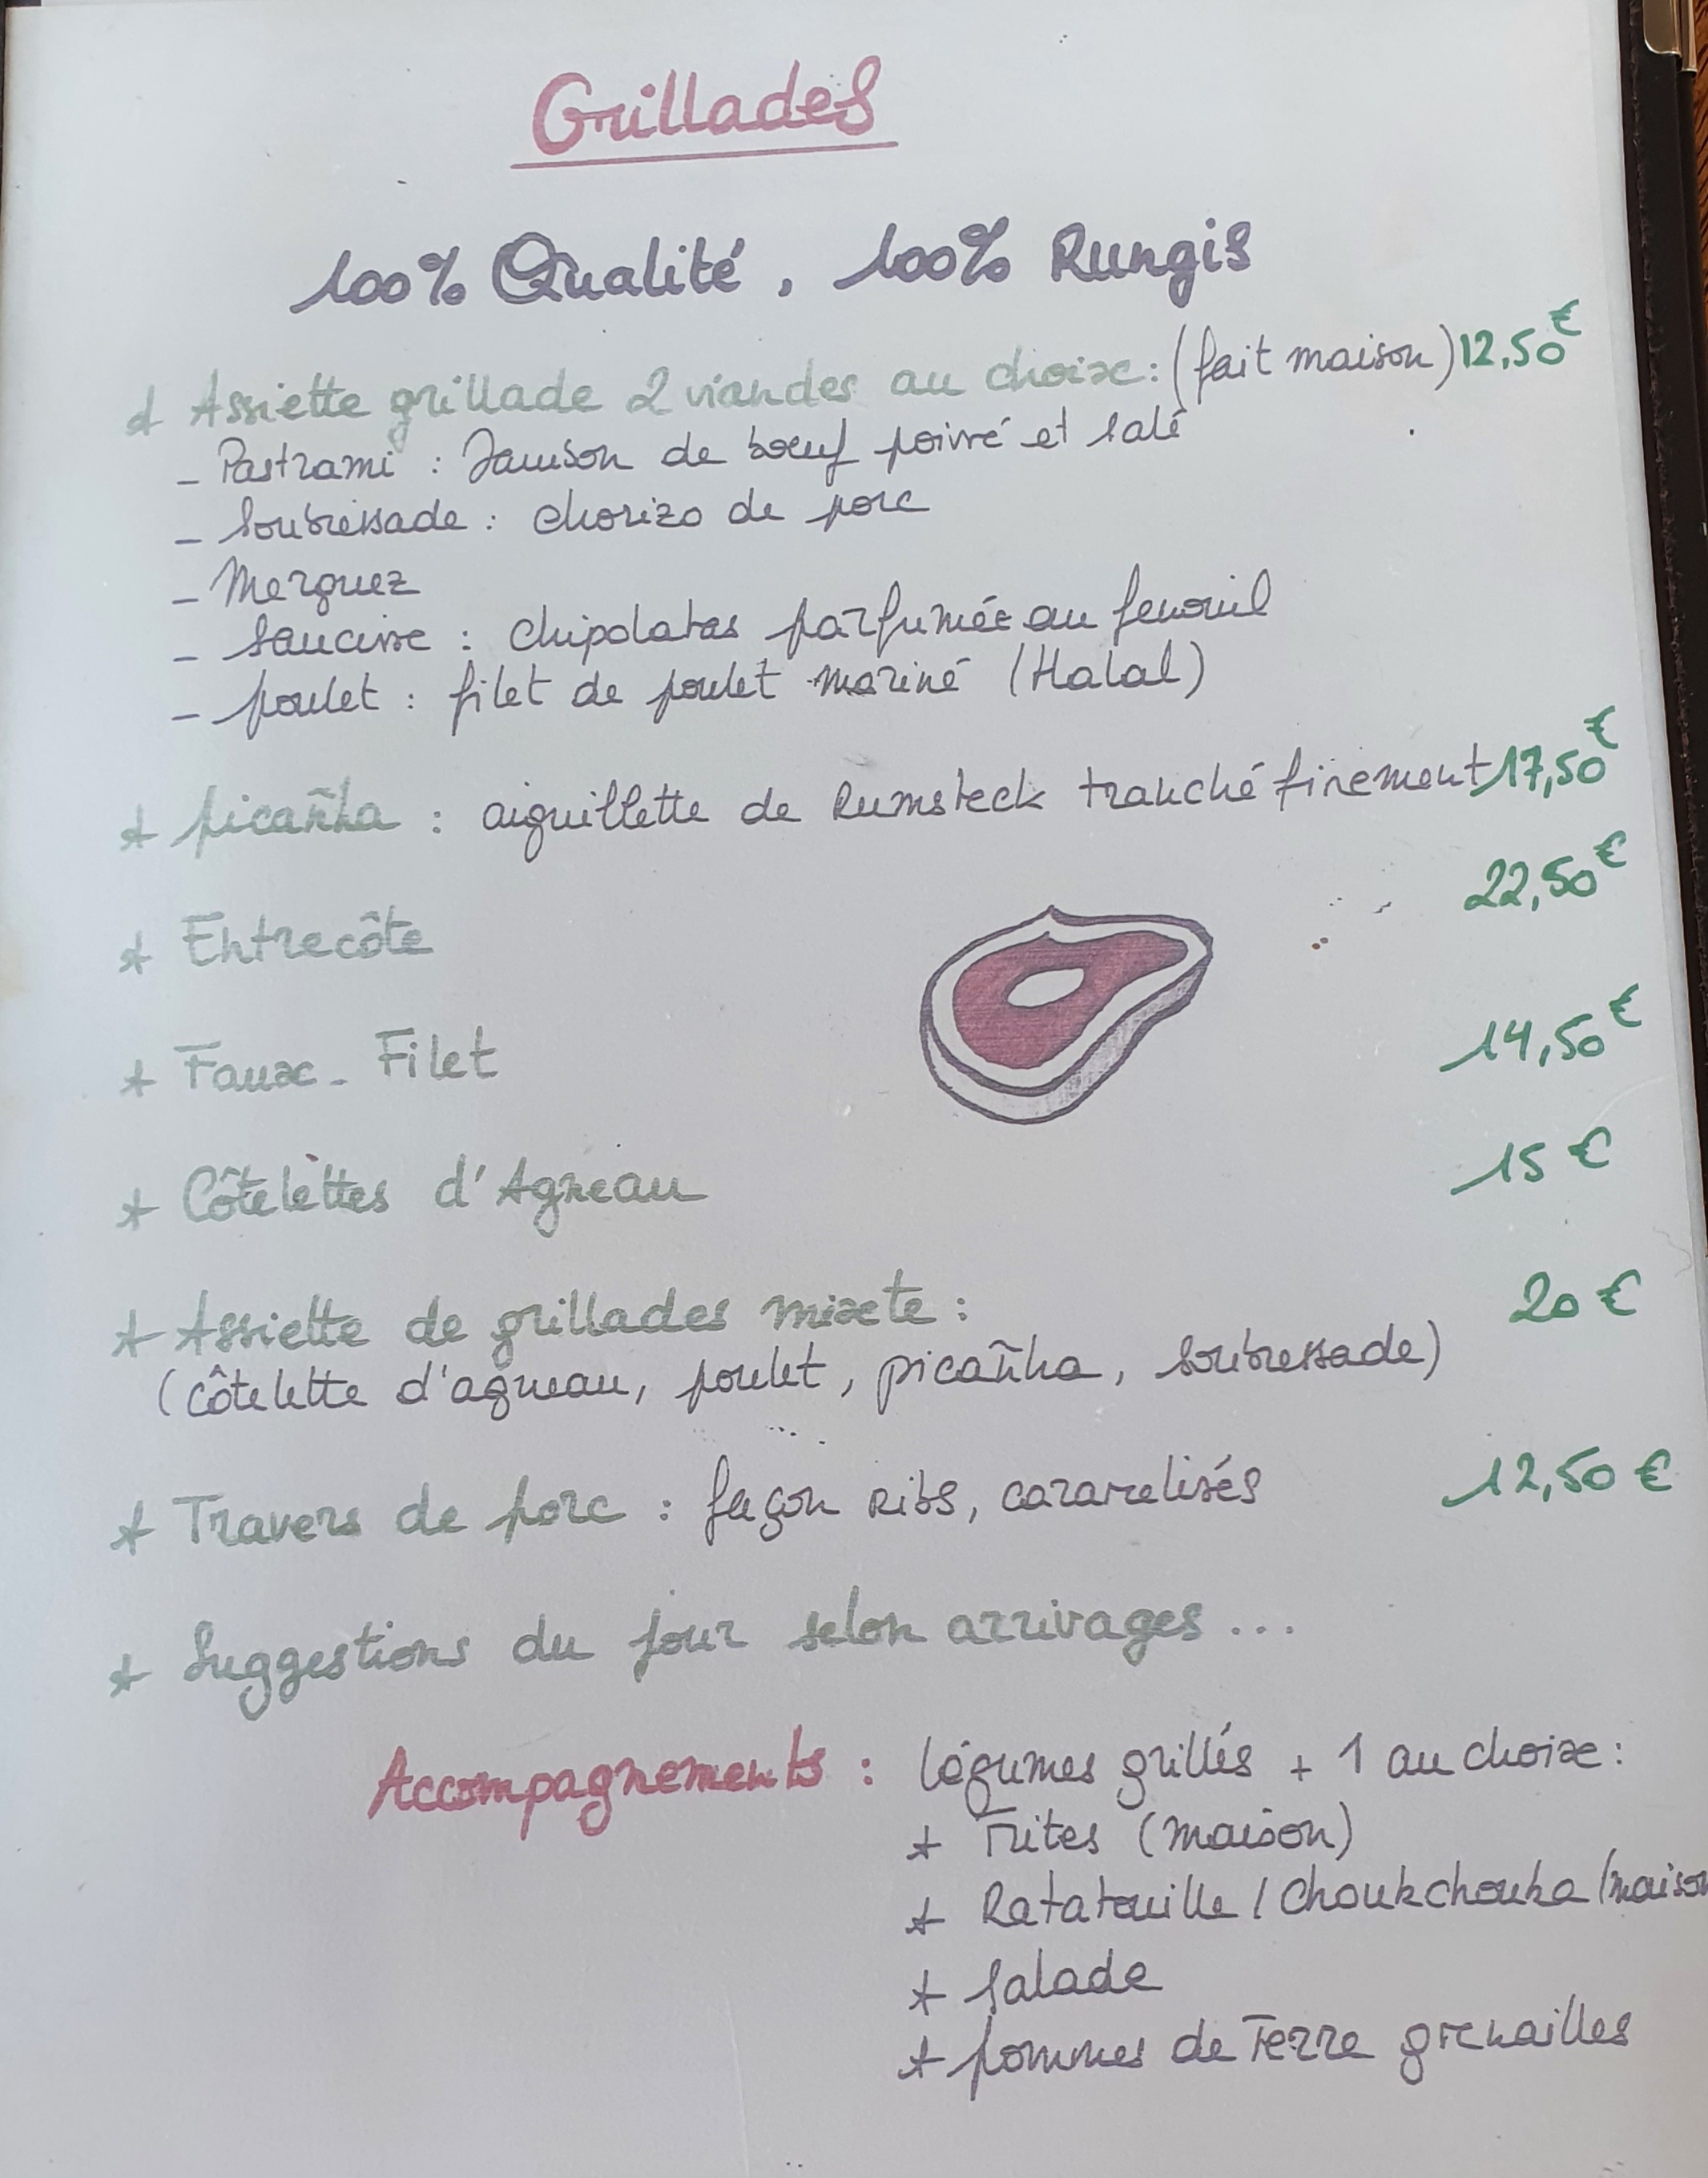 Grillades
100% Qualité, 100% Rungis
* Assiette grillade 2 viandes au choix : (fait maison) 12,50€
- Pastrami : Jambon de boeuf poivré et salé
- Soubressade : chorizo de porc
- Merguez
- Saucisse : chipolatas parfumée au fenouil
- poulet : filet de poulet mariné (Halal)
* picañha : aiguillette de Rumsteck tranché finement 17,50€
* Entrecôte 22,50€
* Faux-Filet 14,50€
* Côtelèttes d'Agneau 15€
* Assiette de grillades mixte : 20€
(côtelette d'agneau, poulet, picañha, soubressade)
* Travers de porc : façon ribs, caramelisés 12,50€
* Suggestions du jour selon arrivages ...
Accompagnements : légumes grillés + 1 au choix :
* Frites (maison)
* Ratatouille / Choukchouka (maison
* Salade
* pommes de Terre grenailles